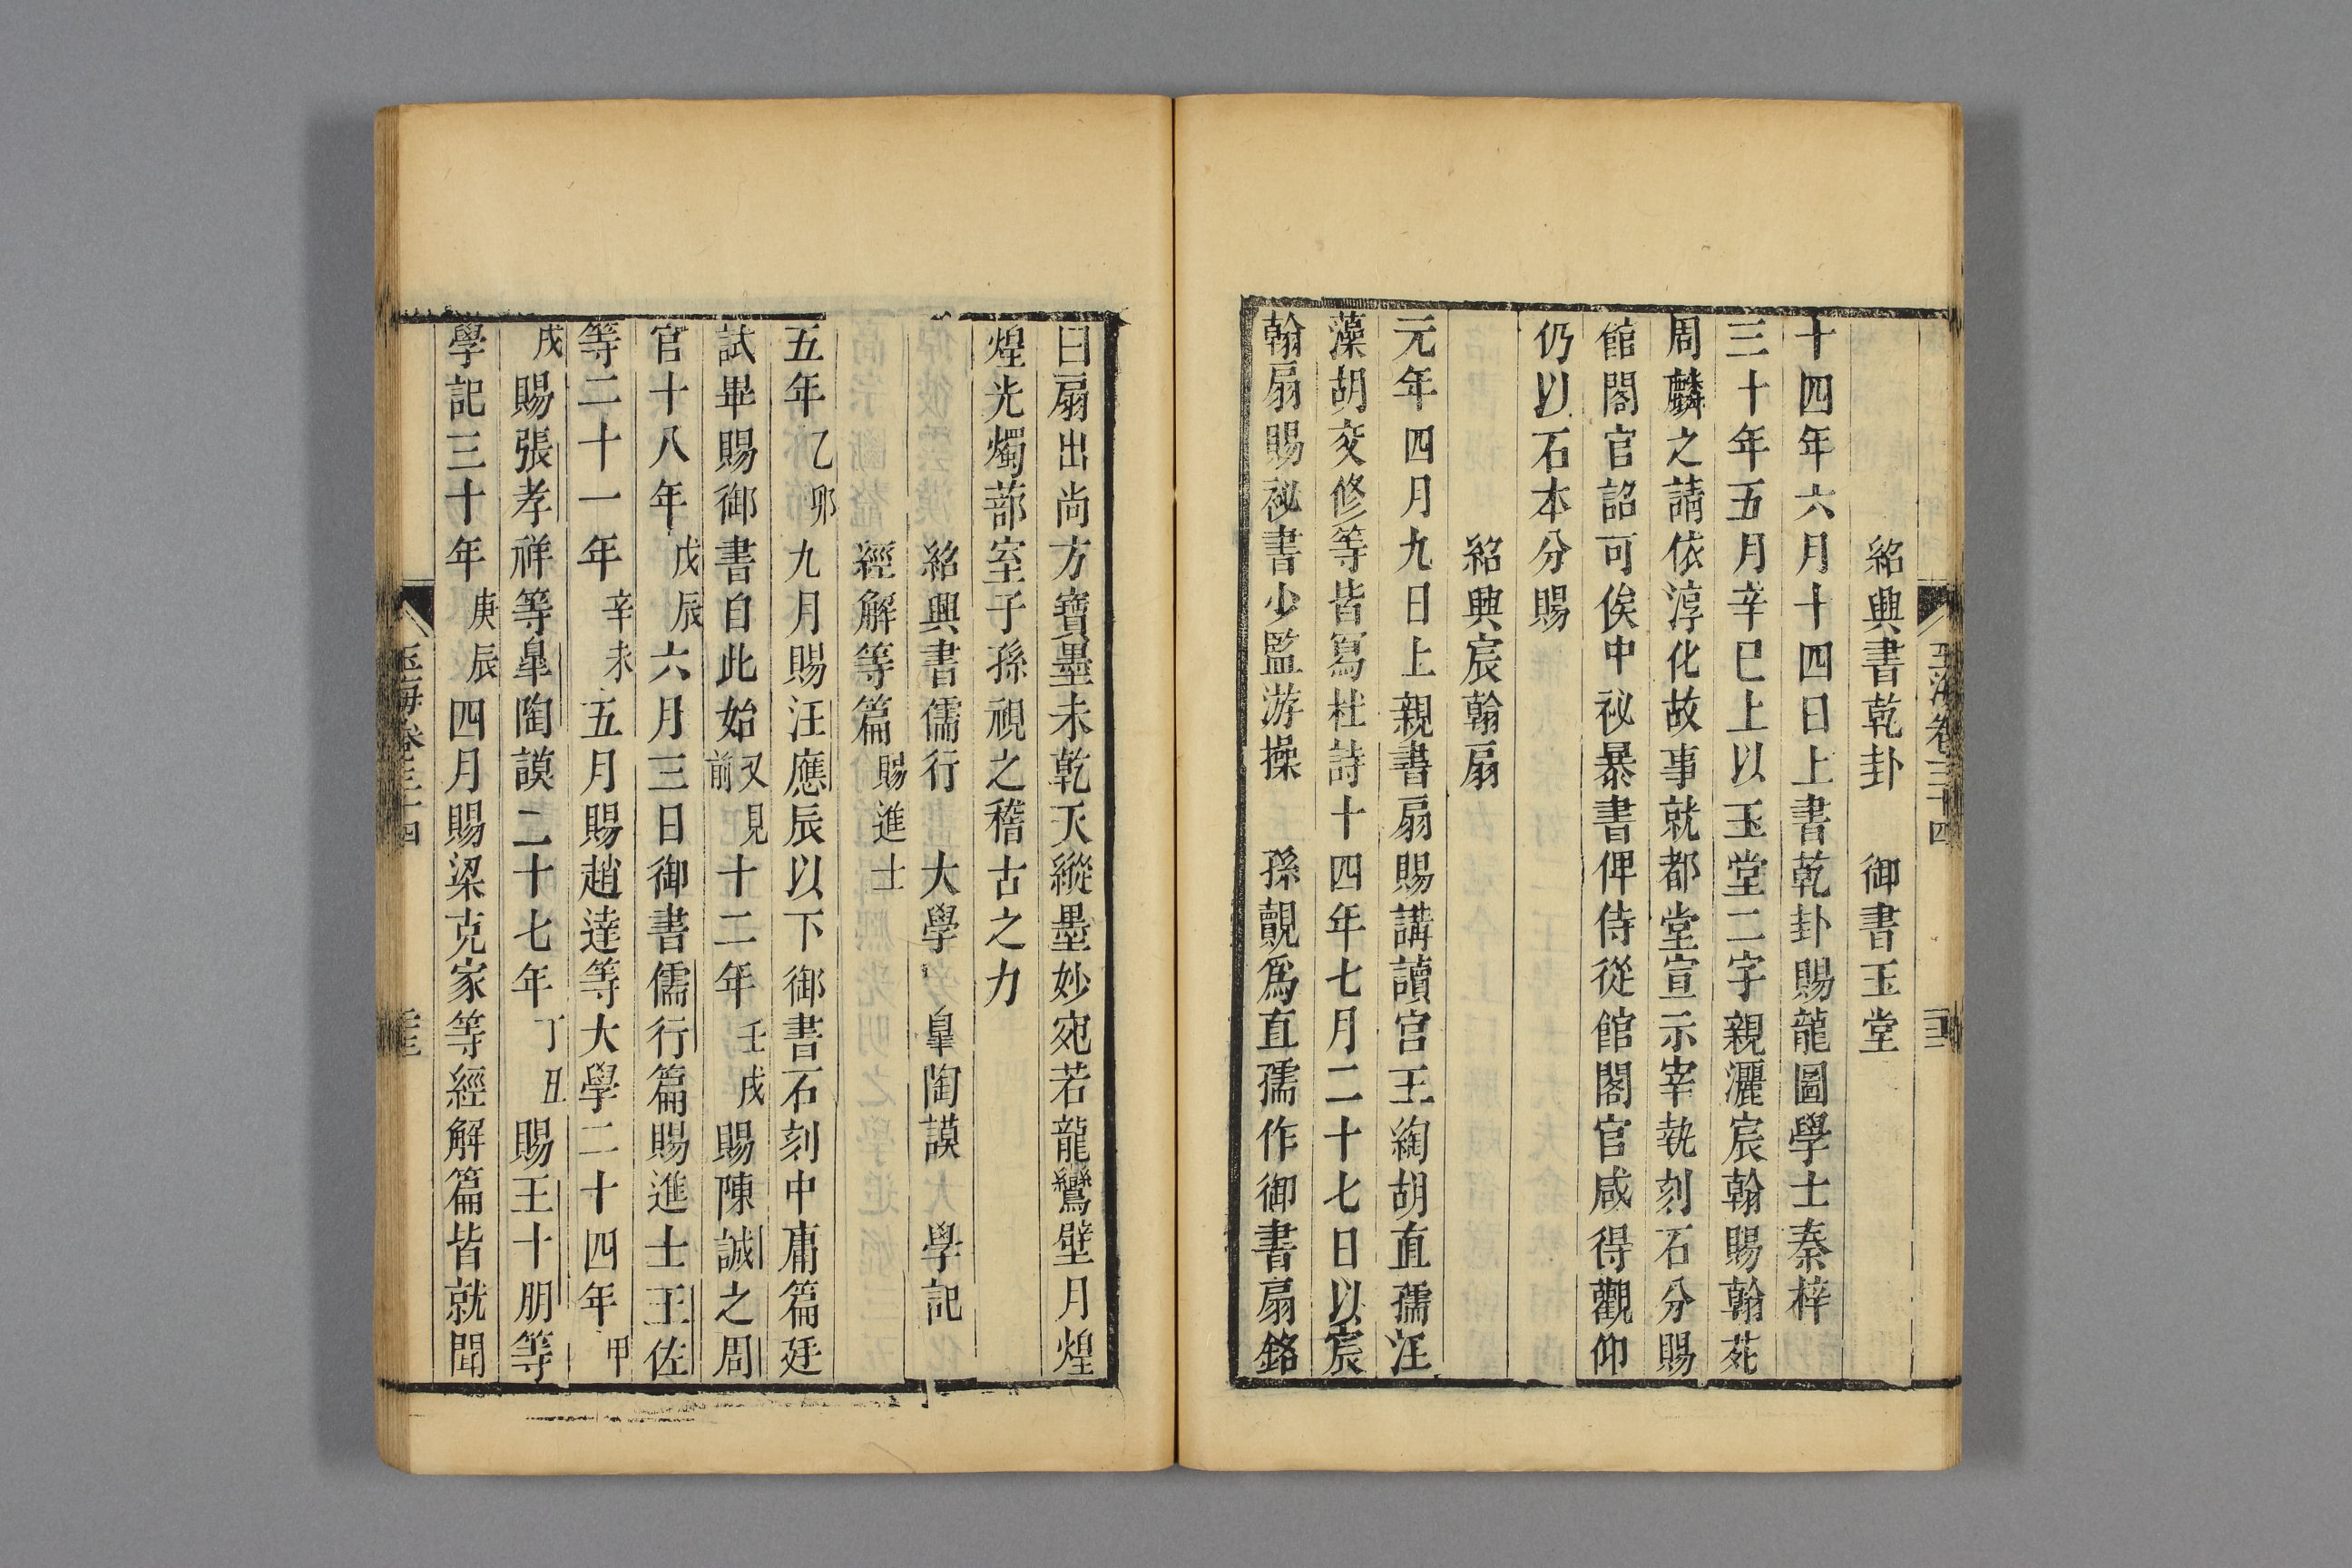 玉海卷三十四
紹興書乾卦　御書玉堂
十四年六月十四日上書乾卦賜龍圖學士秦梓
三十年五月辛巳上以玉堂二字親灑宸翰賜翰苑
周麟之請依淳化故事就都堂宣示宰執刻石分賜
館閣官詔可俟中祕暴書俾侍從館閣官咸得觀仰
仍以石本分賜
紹興宸翰扇
元年四月九日上親書扇賜講讀官王綯胡直孺汪
藻胡交修等皆寫杜詩十四年七月二十七日以宸
翰扇賜祕書少監游操　孫覿爲直孺作御書扇銘
曰扇出尚方寶墨未乾天縱墨妙宛若龍鸞壁月煌
煌光燭蔀室子孫視之稽古之力
紹興書儒行　大學　臯陶謨　學記
經解等篇賜進士
五年乙卯九月賜汪應辰以下御書石刻中庸篇廷
試畢賜御書自此始又見前十二年壬戌賜陳誠之周
官十八年戊辰六月三日御書儒行篇賜進士王佐
等二十一年辛未五月賜趙逵等大學二十四年甲
戌賜張孝祥等臯陶謨二十七年丁丑賜王十朋等
學記三十年庚辰四月賜梁克家等經解篇皆就聞
玉海卷三十四